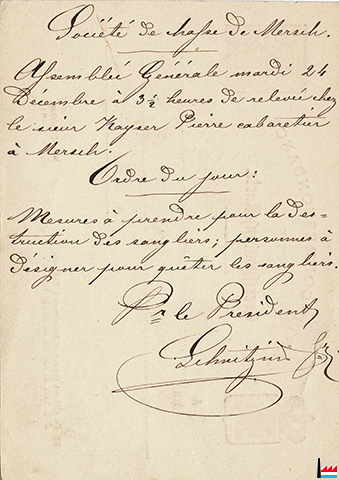 Société de chasse de Mersch.
Assemblée Générale mardi 24
Décembre à 3 1/2 heures de relevée chez
le sieur Kayser Pierre cabaretier
à Mersch.
Ordre du jour:
Mesures à prendre pour la des-
truction des sangliers; personnes à
désigner pour quêter les sangliers.
Pr. le President